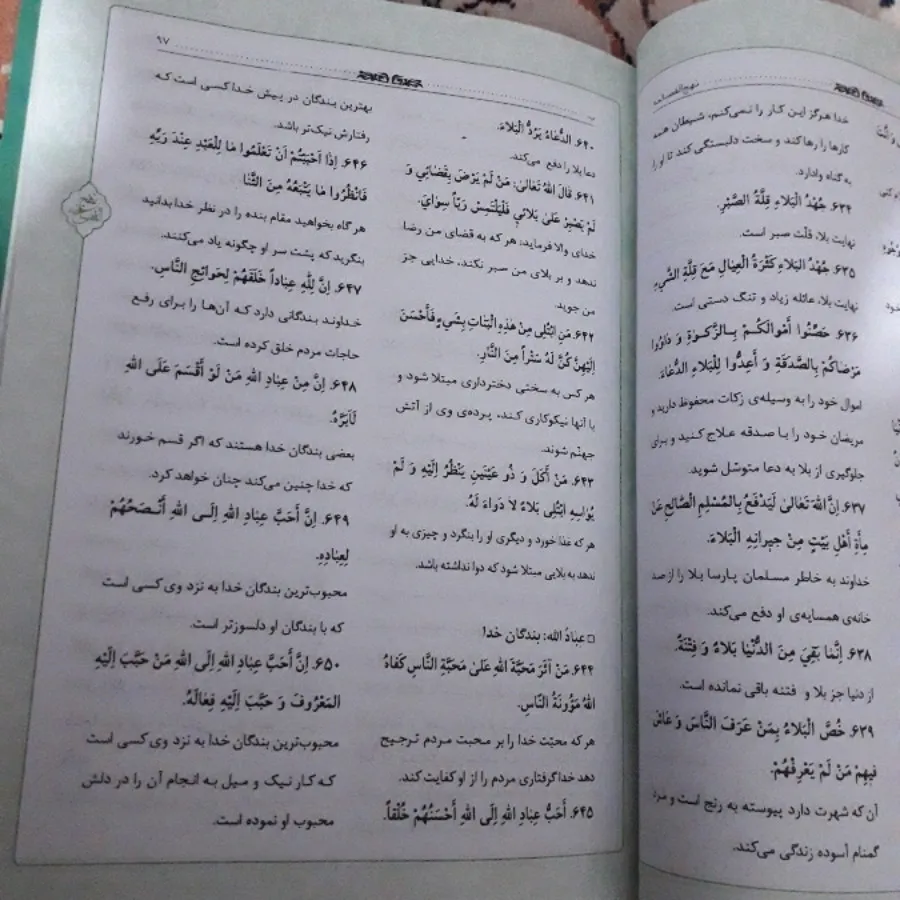 نهج الفصاحه
خدا هرگز این کار را نمی‌کنم، شیطان همه
کارها را رها کند و سخت دلبستگی کند تا او را
به گناه وادارد.
۶۳۴. جُهْدُ الْبَلاءِ قِلَّةُ الصَّبْرِ.
نهایت بلا، قلّت صبر است.
۶۳۵. جُهْدُ الْبَلاءِ كَثْرَةُ الْعِيالِ مَعَ قِلَّةِ الشَّيءِ
نهایت بلا، عائله زیاد و تنگ دستی است.
۶۳۶. حَصِّنُوا أَمْوالَكُمْ بِالزَّكوةِ وَ داوُوا
مَرْضاكُمْ بِالصَّدَقَةِ وَ أَعِدُّوا لِلْبَلاءِ الدُّعاءَ.
اموال خود را به وسیله‌ی زکات محفوظ دارید و
مریضان خود را با صدقه علاج کنید و برای
جلوگیری از بلا به دعا متوسّل شوید.
۶۳۷. إنَّ اللهَ تَعالىٰ لَيَدْفَعُ بِالْمُسْلِمِ الصّالِحِ عَنْ
مِأةِ أَهْلِ بَيْتٍ مِنْ جيرانِهِ الْبَلاءَ.
خداوند به خاطر مسلمان پارسا بلا را از صد
خانه‌ی همسایه‌ی او دفع می‌کند.
۶۳۸. إنَّما بَقِيَ مِنَ الدُّنْيا بَلاءٌ وَ فِتْنَةٌ.
از دنیا جز بلا و فتنه باقی نمانده است.
۶۳۹. خُصَّ الْبَلاءُ بِمَنْ عَرَفَ النّاسَ وَ عاشَ
فيهِمْ مَنْ لَمْ يَعْرِفْهُمْ.
آن که شهرت دارد پیوسته به رنج است و مرد
گمنام آسوده زندگی می‌کند.
۹۷
۶۴۰. الدُّعاءُ يَرُدُّ الْبَلاءَ.
دعا بلا را دفع می‌کند.
۶۴۱. قالَ اللهُ تَعالىٰ: مَنْ لَمْ يَرْضَ بِقَضائي وَ
لَمْ يَصْبِرْ عَلىٰ بَلائي فَلْيَلْتَمِسْ رَبّاً سِوايَ.
خدای والا فرماید: هر که به قضای من رضا
ندهد و بر بلای من صبر نکند، خدایی جز
من جوید.
۶۴۲. مَنِ ابْتُلِيَ مِنْ هٰذِهِ الْبَناتِ بِشَيءٍ فَأَحْسَنَ
إلَيْهِنَّ كُنَّ لَهُ سَتْراً مِنَ النّارِ.
هر کس به سختی دخترداری مبتلا شود و
با آنها نیکوکاری کند، پرده‌ی وی از آتش
جهنّم شوند.
۶۴۳. مَنْ أَكَلَ وَ ذُو عَيْنَيْنِ يَنْظُرُ إلَيْهِ وَ لَمْ
يُواسِهِ ابْتُلِيَ بَلاءً لا دَواءَ لَهُ.
هر که غذا خورد و دیگری او را بنگرد و چیزی به او
ندهد به بلایی مبتلا شود که دوا نداشته باشد.
□ عِبادُ الله: بندگان خدا
۶۴۴. مَنْ آثَرَ مَحَبَّةَ اللهِ عَلىٰ مَحَبَّةِ النّاسِ كَفاهُ
اللهُ مَؤُونَةَ النّاسِ.
هر که محبّت خدا را بر محبت مردم ترجیح
دهد خدا گرفتاری مردم را از او کفایت کند.
۶۴۵. أَحَبُّ عِبادِ اللهِ إلَى اللهِ أَحْسَنُهُمْ خُلْقاً.
بهترین بندگان در پیش خدا کسی است که
رفتارش نیک‌تر باشد.
۶۴۶. إذا أَحْبَبْتُمْ أنْ تَعْلَمُوا ما لِلْعَبْدِ عِنْدَ رَبِّهِ
فَانْظُرُوا ما يَتْبَعُهُ مِنَ الثَّنا
هر گاه بخواهید مقام بنده را در نظر خدا بدانید
بنگرید که پشت سر او چگونه یاد می‌کنند.
۶۴۷. إنَّ لِلّٰهِ عِباداً خَلَقَهُمْ لِحَوائِجِ النّاسِ.
خداوند بندگانی دارد که آن‌ها را برای رفع
حاجات مردم خلق کرده است.
۶۴۸. إنَّ مِنْ عِبادِ اللهِ مَنْ لَوْ أَقْسَمَ عَلَى اللهِ
لَأَبَرَّهُ.
بعضی بندگان خدا هستند که اگر قسم خورند
که خدا چنین می‌کند چنان خواهد کرد.
۶۴۹. إنَّ أَحَبَّ عِبادِ اللهِ إلَى اللهِ أَنْصَحُهُمْ
لِعِبادِهِ.
محبوب‌ترین بندگان خدا به نزد وی کسی است
که با بندگان او دلسوزتر است.
۶۵۰. إنَّ أَحَبَّ عِبادِ اللهِ إلَى اللهِ مَنْ حَبَّبَ إلَيْهِ
المَعْرُوفَ وَ حَبَّبَ إلَيْهِ فِعالَهُ.
محبوب‌ترین بندگان خدا به نزد وی کسی است
که کار نیک و میل به انجام آن را در دلش
محبوب او نموده است.